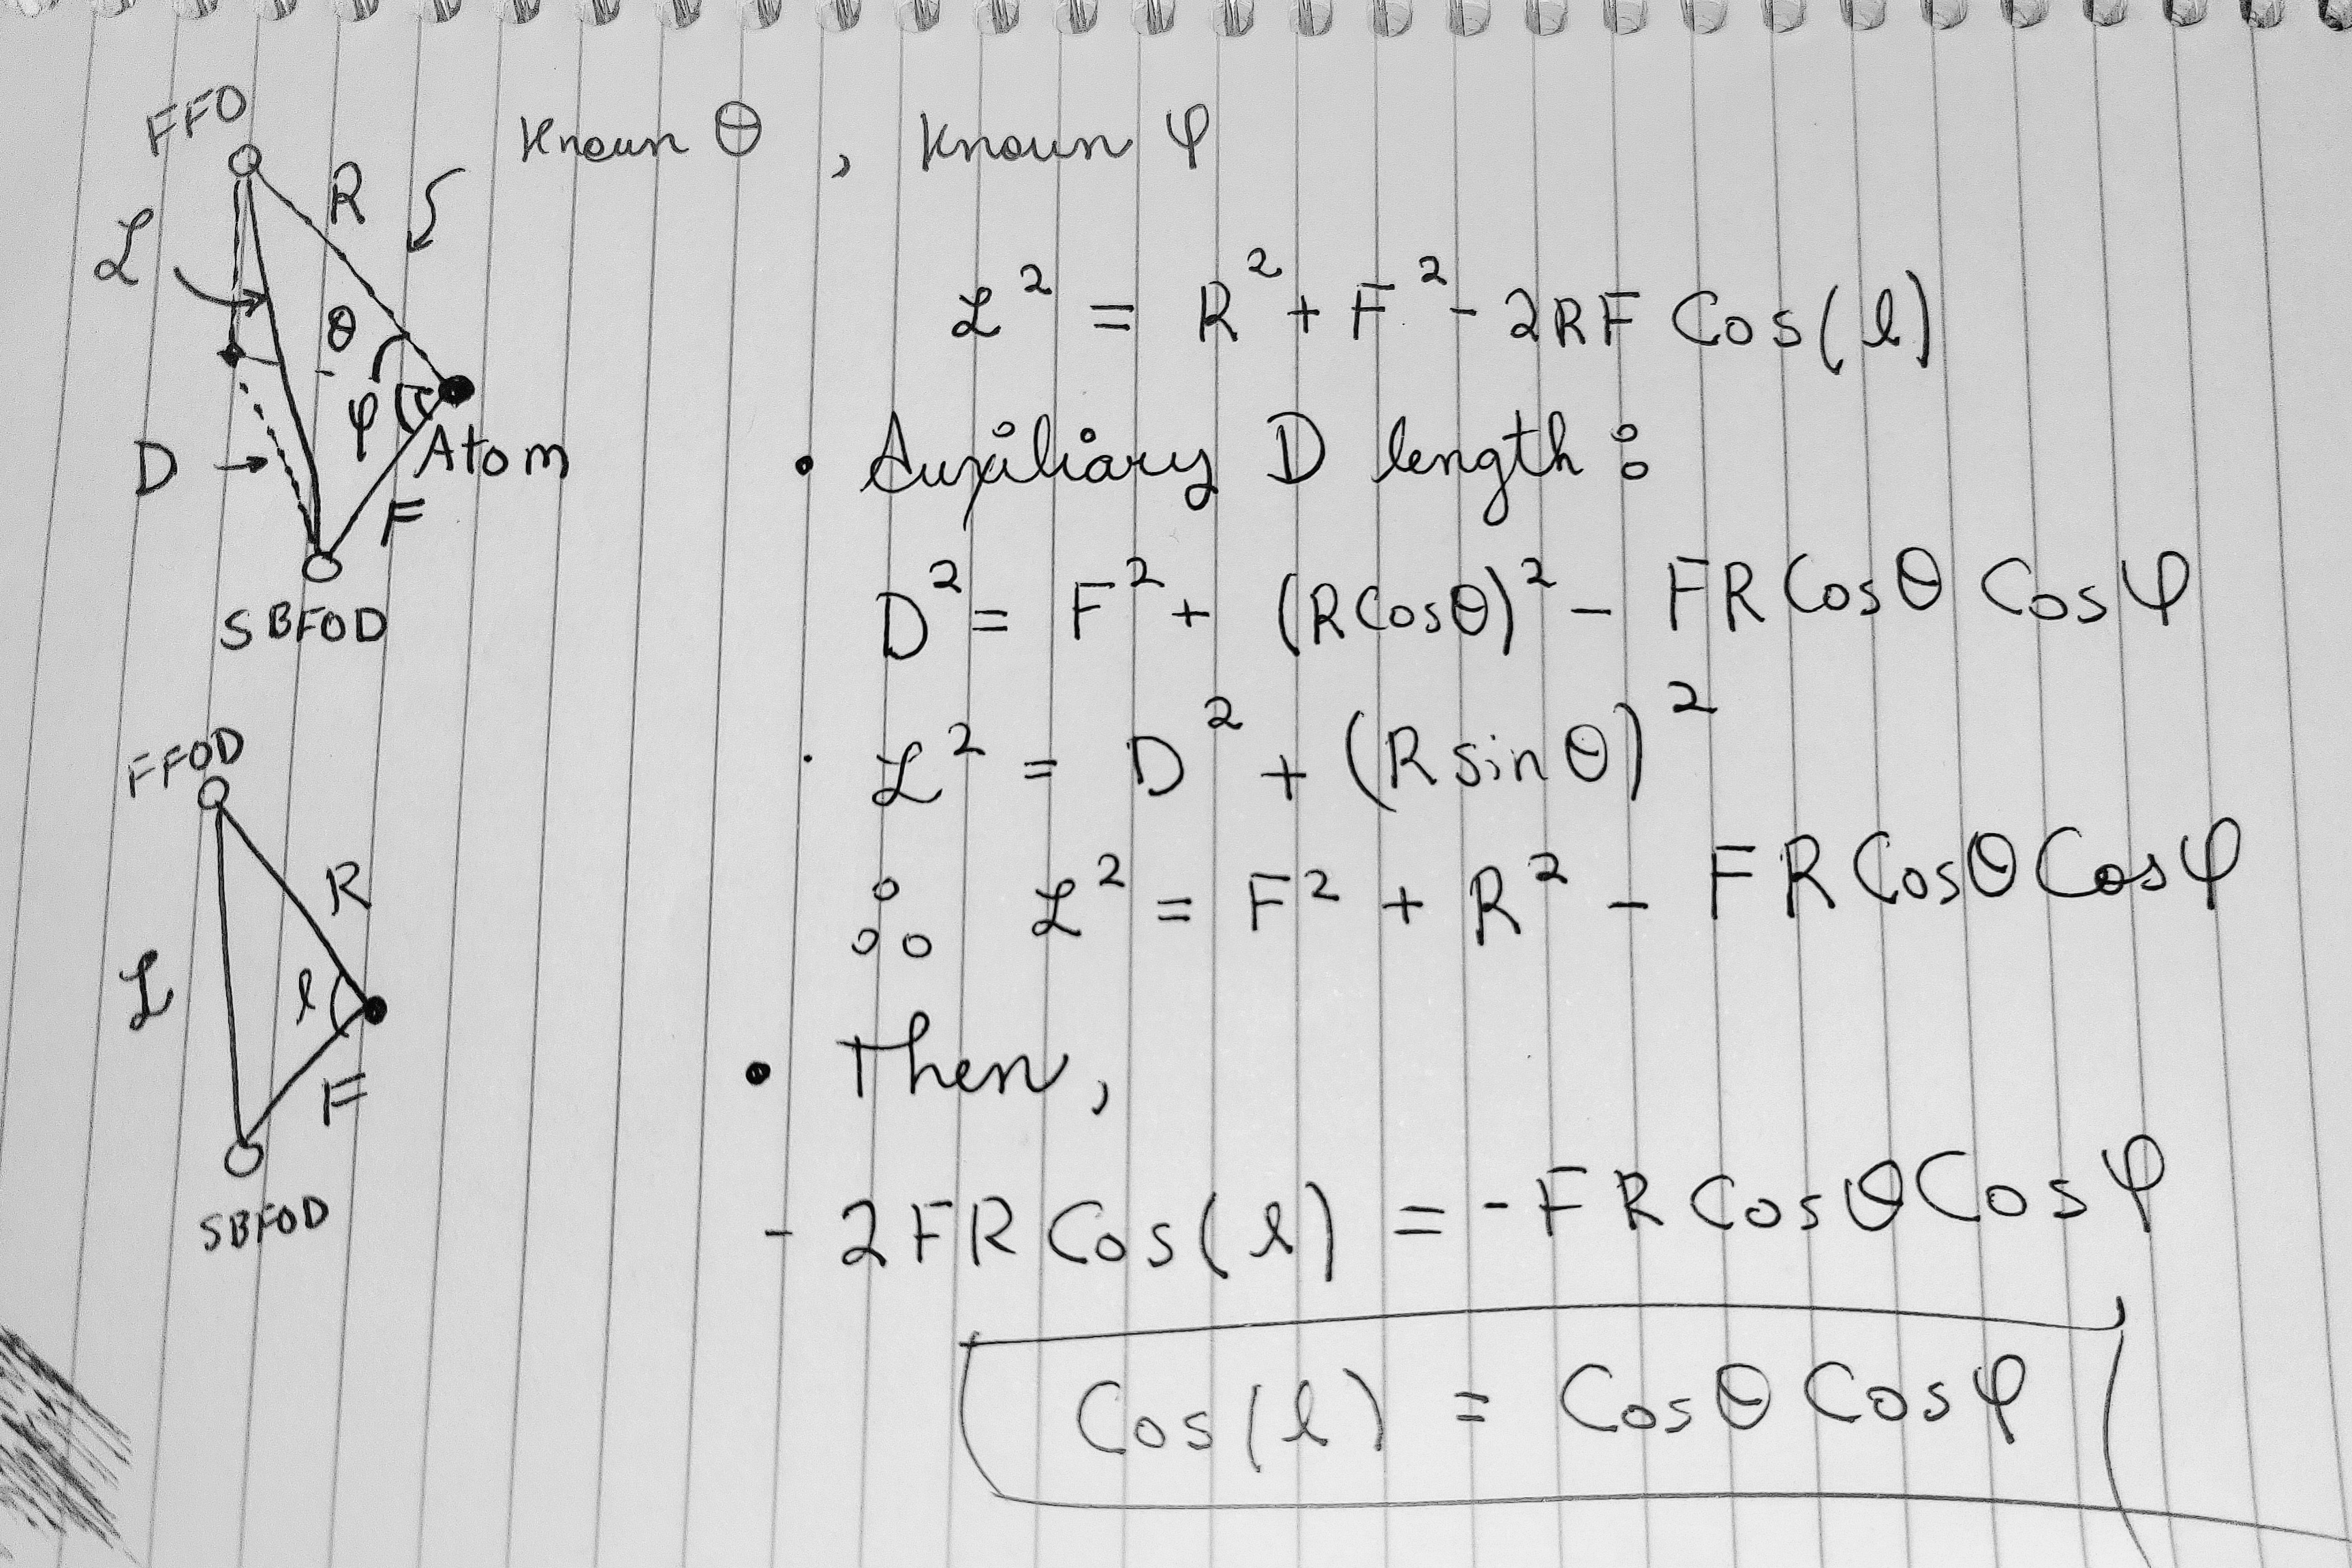 FFO
R
Known θ , Known φ
ℒ
θ
φ
D
Atom
F
SBFOD
ℒ² = R² + F² - 2RF Cos(l)
• Auxiliary D length :
D² = F² + (RCosθ)² - FR Cosθ Cosφ
· ℒ² = D² + (R sinθ)²
∴ ℒ² = F² + R² - FR Cosθ Cosφ
FFOD
R
ℒ
l
F
SBFOD
• Then,
- 2FR Cos(l) = -FR Cosθ Cosφ
Cos(l) = Cosθ Cosφ